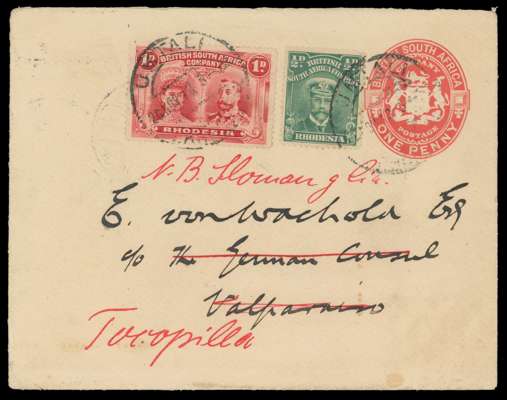 UMTALI
1D BRITISH SOUTH AFRICA COMPANY 1D
RHODESIA
½D BRITISH SOUTH AFRICA COMPANY ½D
RHODESIA
BRITISH SOUTH AFRICA COMPANY
POSTAGE
ONE PENNY
N. B. Sloman y Cia.
E. von Wachold Esq
c/o The German Consul
Valparaiso
Tocopilla